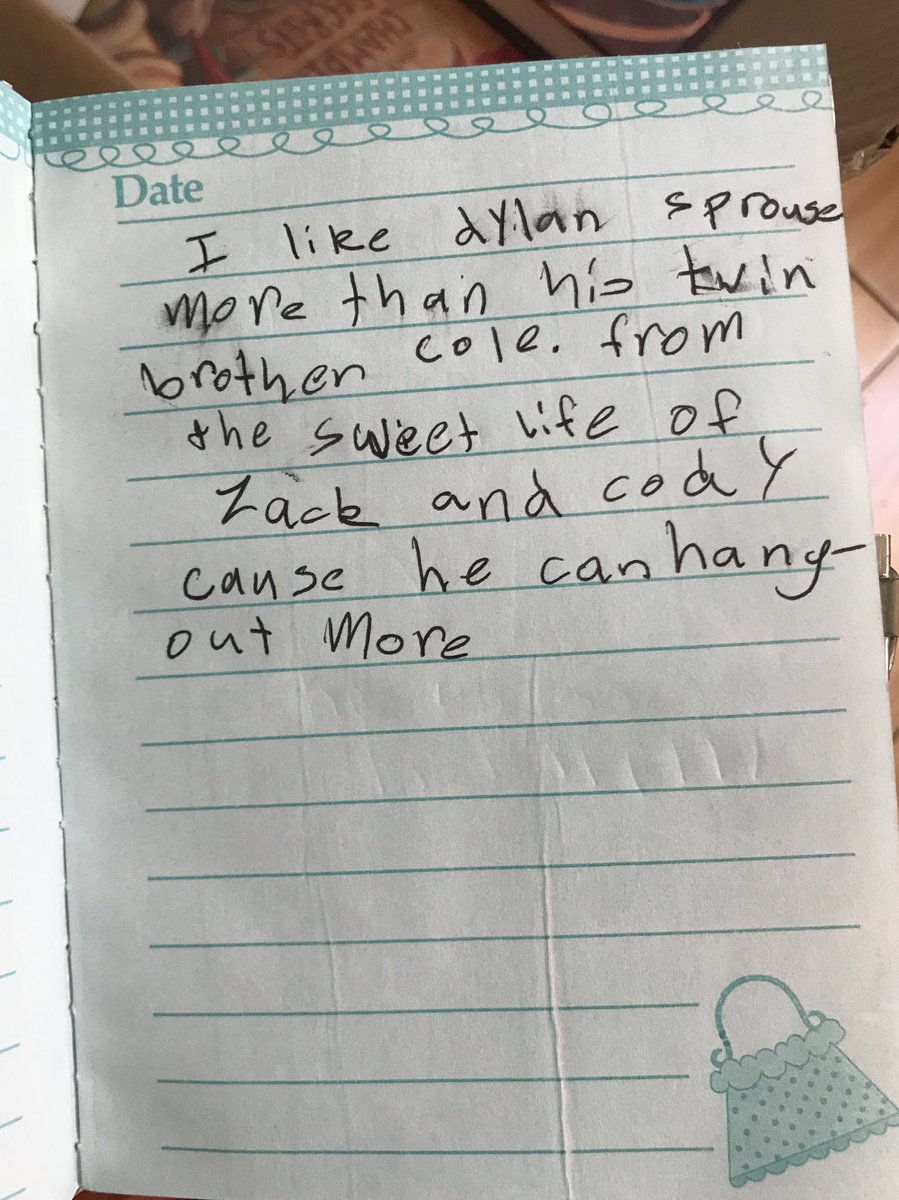 Date
I like dylan sprouse
more than his twin
brother cole. from
the sweet life of
Zack and cody
cause he can hang-
out more